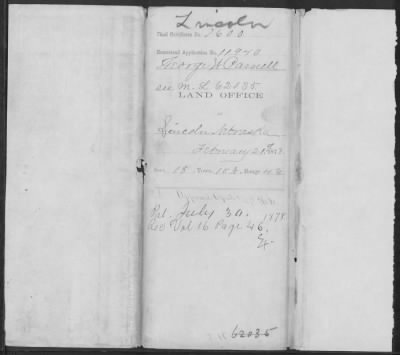 Lincoln
Final Certificate No. 7600
Homestead Application No. 11940
George W Parnell
see M. L 62035
LAND OFFICE
Lincoln Nebraska
February 21
Sec. 18 Town
Pat. July 30. 1878
Rec Vol 16 Page 46.
62035